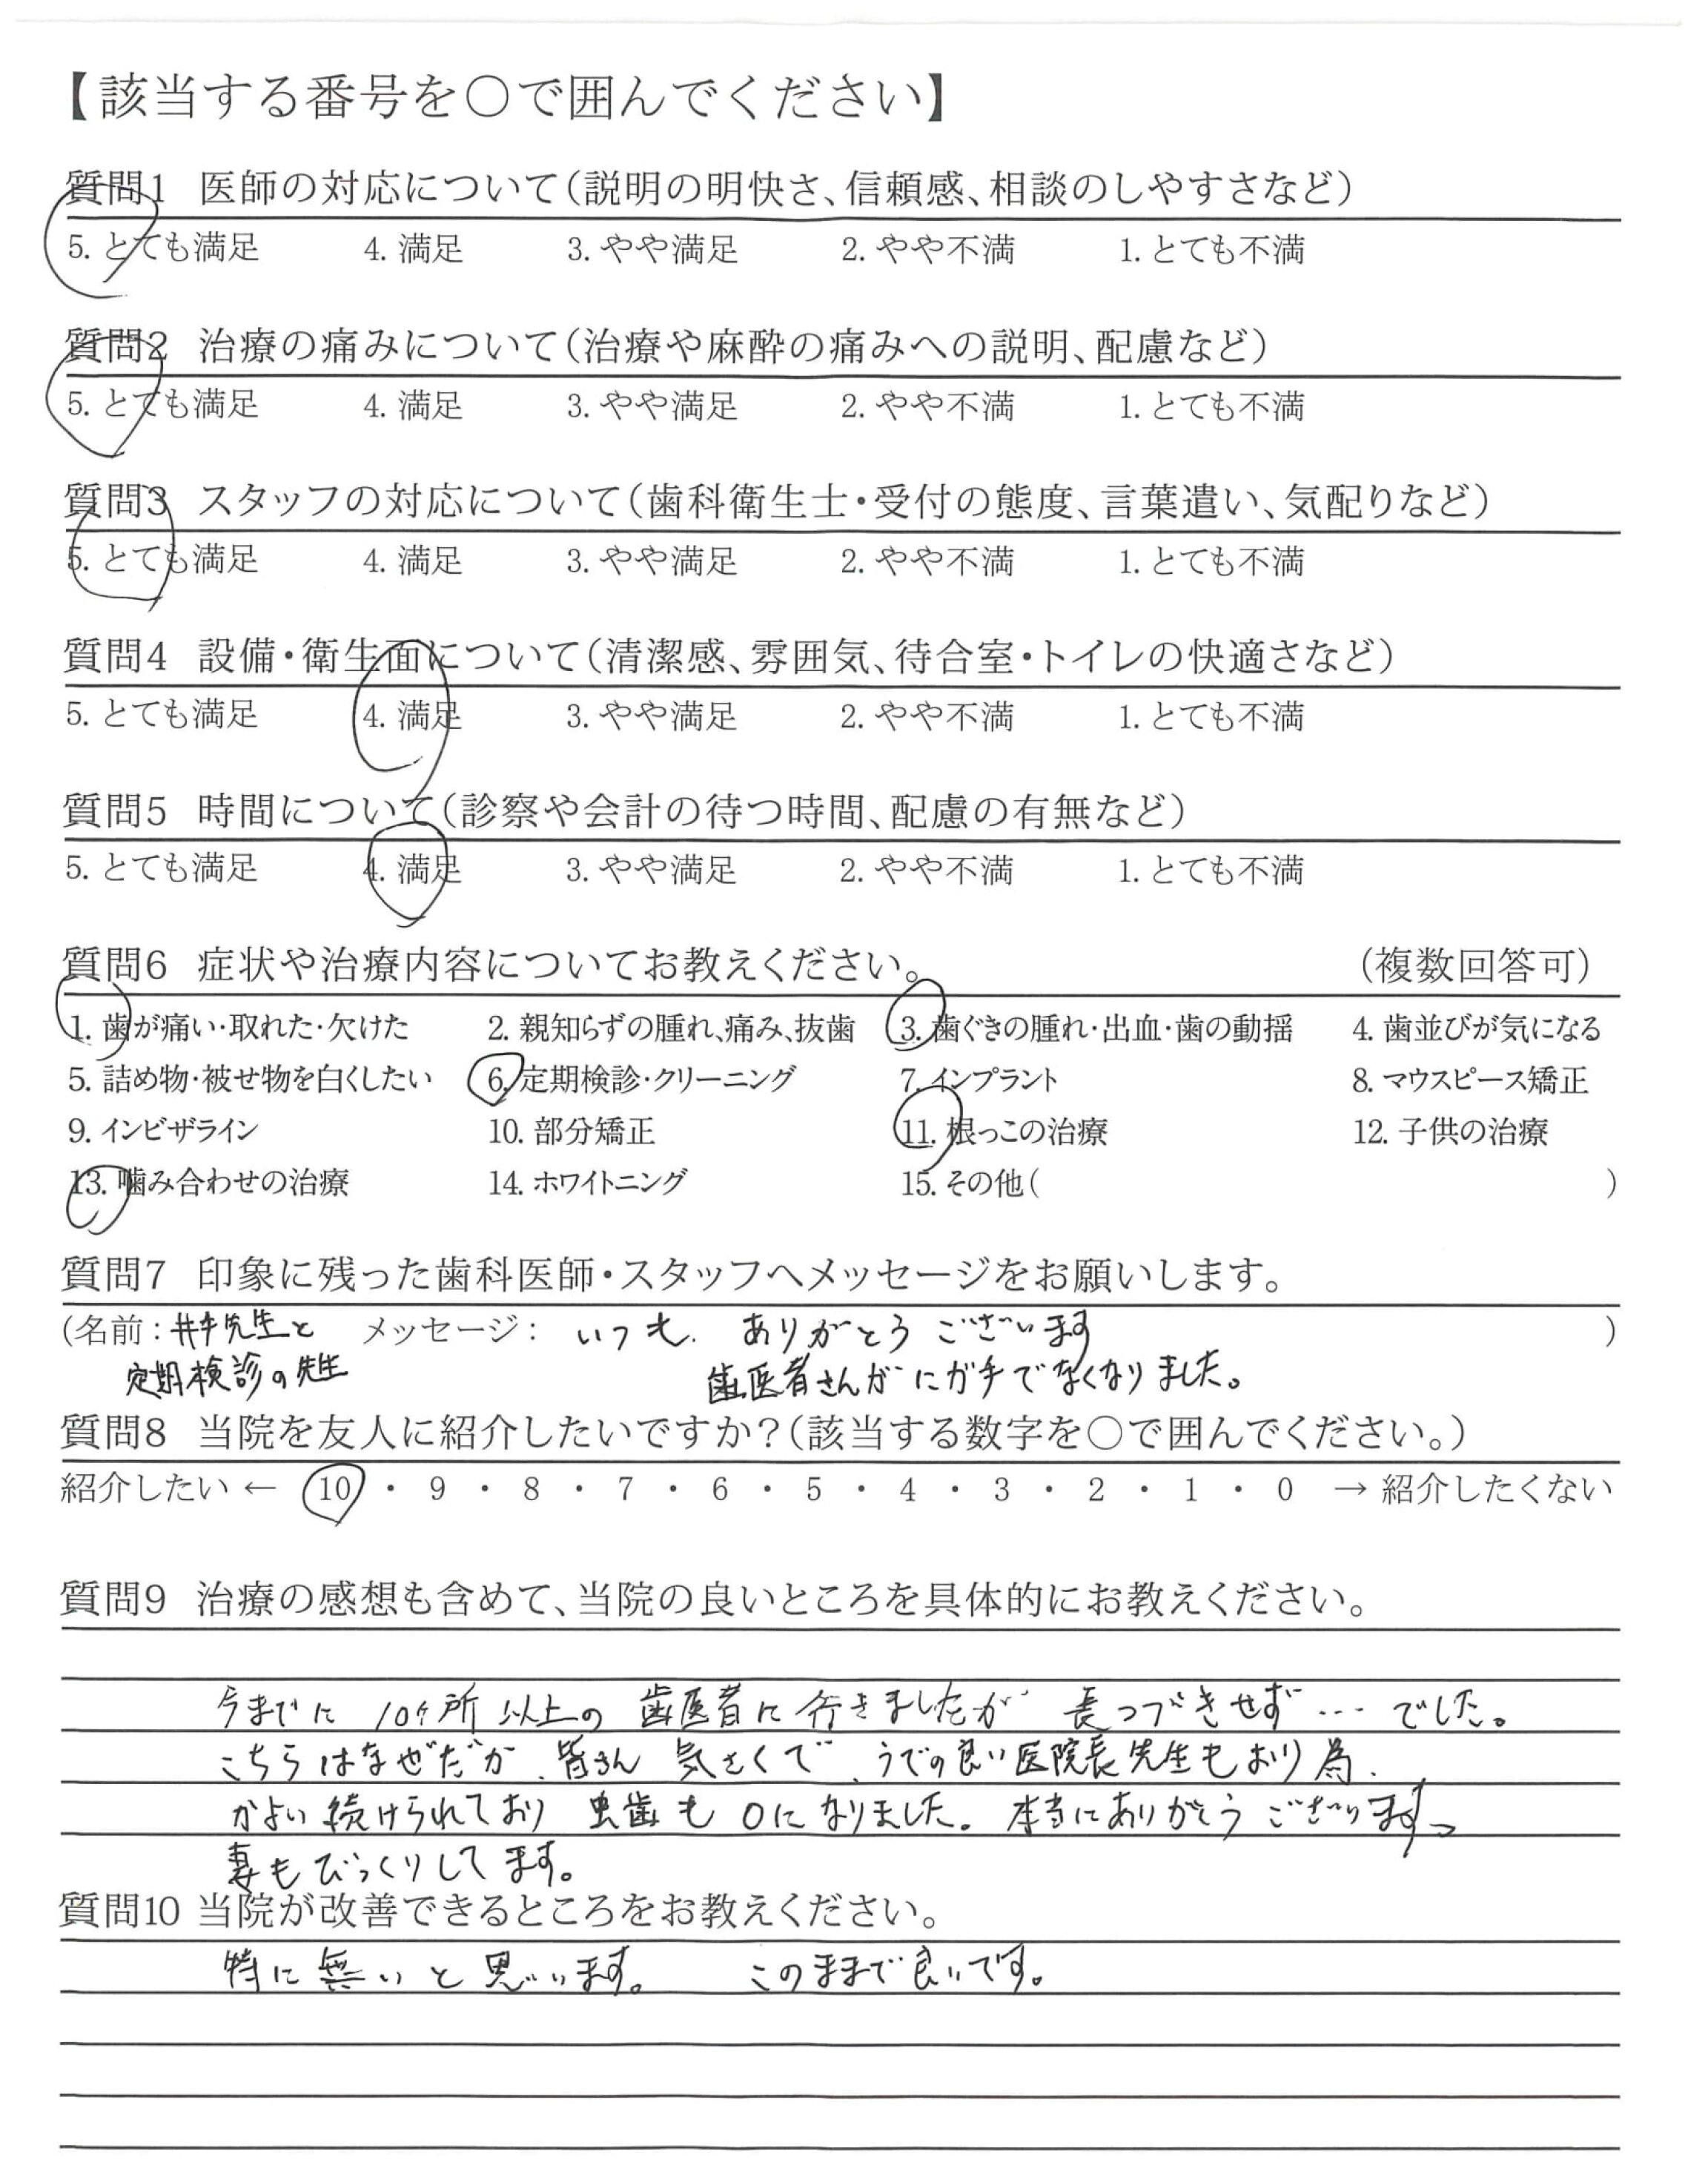 【該当する番号を○で囲んでください】
質問1 医師の対応について(説明の明快さ、信頼感、相談のしやすさなど)
5. とても満足 4. 満足 3. やや満足 2. やや不満 1. とても不満
質問2 治療の痛みについて(治療や麻酔の痛みへの説明、配慮など)
5. とても満足 4. 満足 3. やや満足 2. やや不満 1. とても不満
質問3 スタッフの対応について(歯科衛生士・受付の態度、言葉遣い、気配りなど)
5. とても満足 4. 満足 3. やや満足 2. やや不満 1. とても不満
質問4 設備・衛生面について(清潔感、雰囲気、待合室・トイレの快適さなど)
5. とても満足 4. 満足 3. やや満足 2. やや不満 1. とても不満
質問5 時間について(診察や会計の待つ時間、配慮の有無など)
5. とても満足 4. 満足 3. やや満足 2. やや不満 1. とても不満
質問6 症状や治療内容についてお教えください。 (複数回答可)
1. 歯が痛い・取れた・欠けた 2. 親知らずの腫れ、痛み、抜歯 3. 歯ぐきの腫れ・出血・歯の動揺 4. 歯並びが気になる
5. 詰め物・被せ物を白くしたい 6. 定期検診・クリーニング 7. インプラント 8. マウスピース矯正
9. インビザライン 10. 部分矯正 11. 根っこの治療 12. 子供の治療
13. 噛み合わせの治療 14. ホワイトニング 15. その他( )
質問7 印象に残った歯科医師・スタッフへメッセージをお願いします。
(名前: 先生と メッセージ: いつも. ありがとうございます )
定期検診の先生 歯医者さんがにガテでなくなりました。
質問8 当院を友人に紹介したいですか?(該当する数字を○で囲んでください。)
紹介したい ← 10 ・ 9 ・ 8 ・ 7 ・ 6 ・ 5 ・ 4 ・ 3 ・ 2 ・ 1 ・ 0 → 紹介したくない
質問9 治療の感想も含めて、当院の良いところを具体的にお教えください。
今までに 10ヶ所 以上の 歯医者に行きましたが 長つづきせず… でした。
こちらはなぜだか、皆さん 気さくで、うでの良い医院長先生もおり為、
かよい続けられており 虫歯も 0になりました。本当にありがとうございます
妻もびっくりしてます。
質問10 当院が改善できるところをお教えください。
特に無いと思います。 このままで良いです。